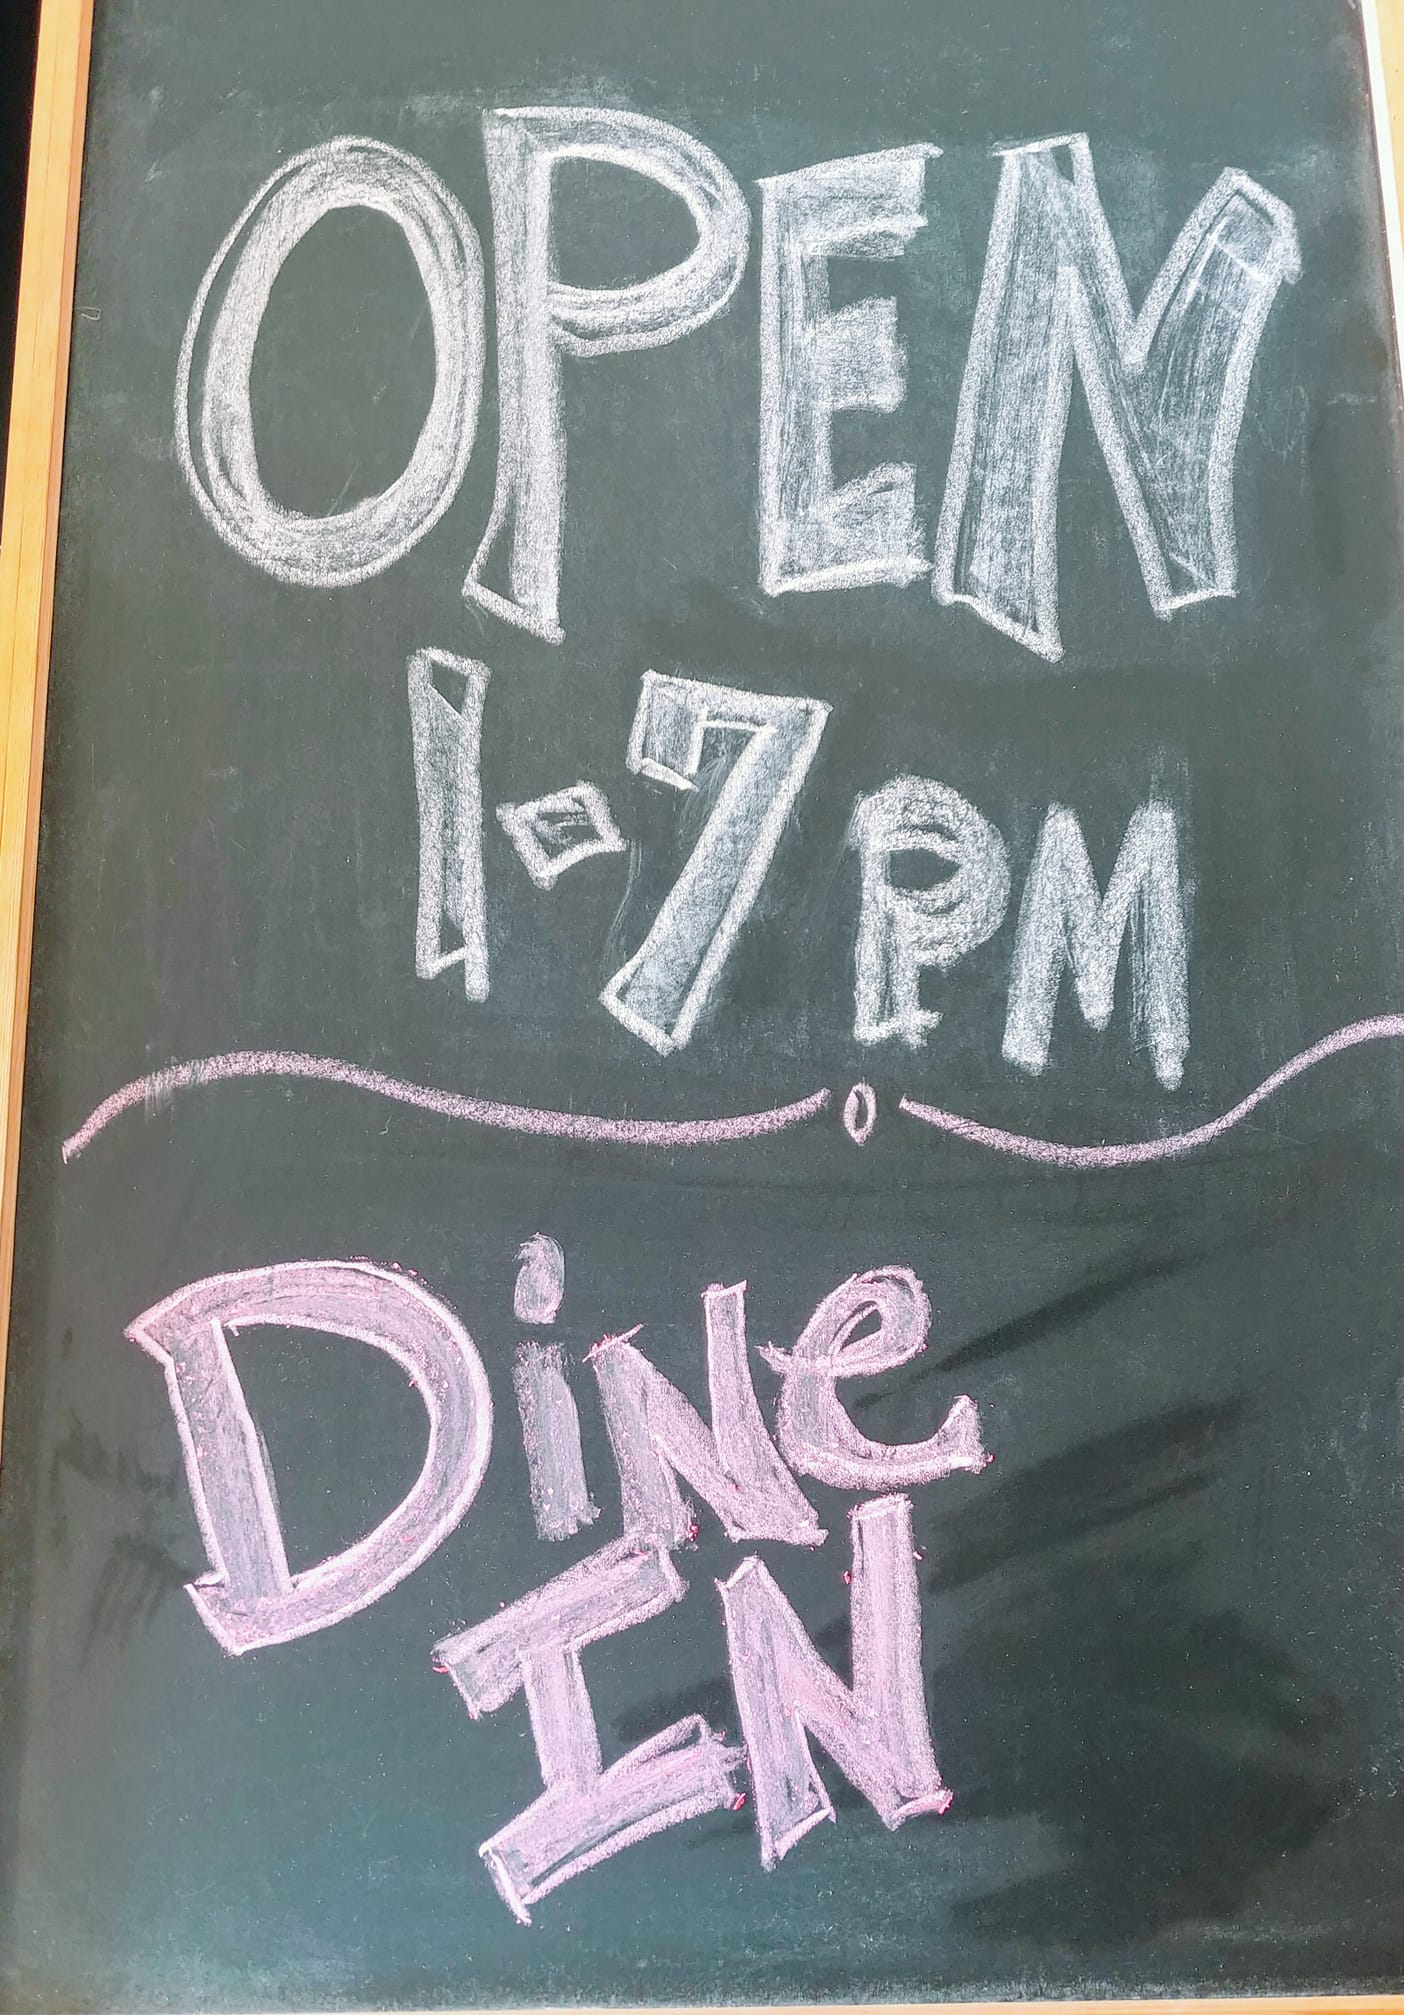 OPEN
1-7PM
DiNe
IN